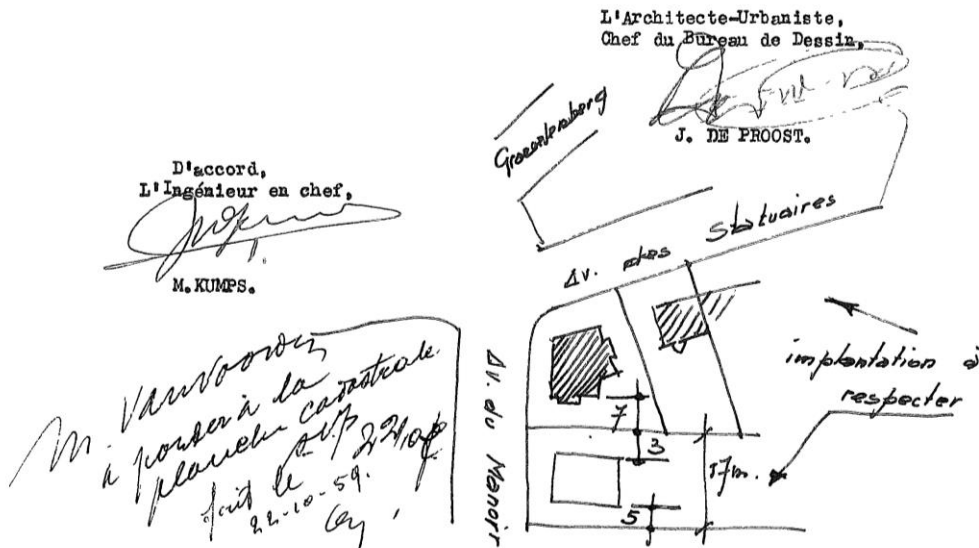 L'Architecte-Urbaniste,
Chef du Bureau de Dessin,
J. DE PROOST.
D'accord,
L'Ingénieur en chef,
M.KUMPS.
Groeselenberg
Av. des Statuaires
Av. du Manoir
implantation à
respecter
7
3
17m.
5
M. Vanvooren
à porter à la
planche cadastrale
fait le
22-10-59.